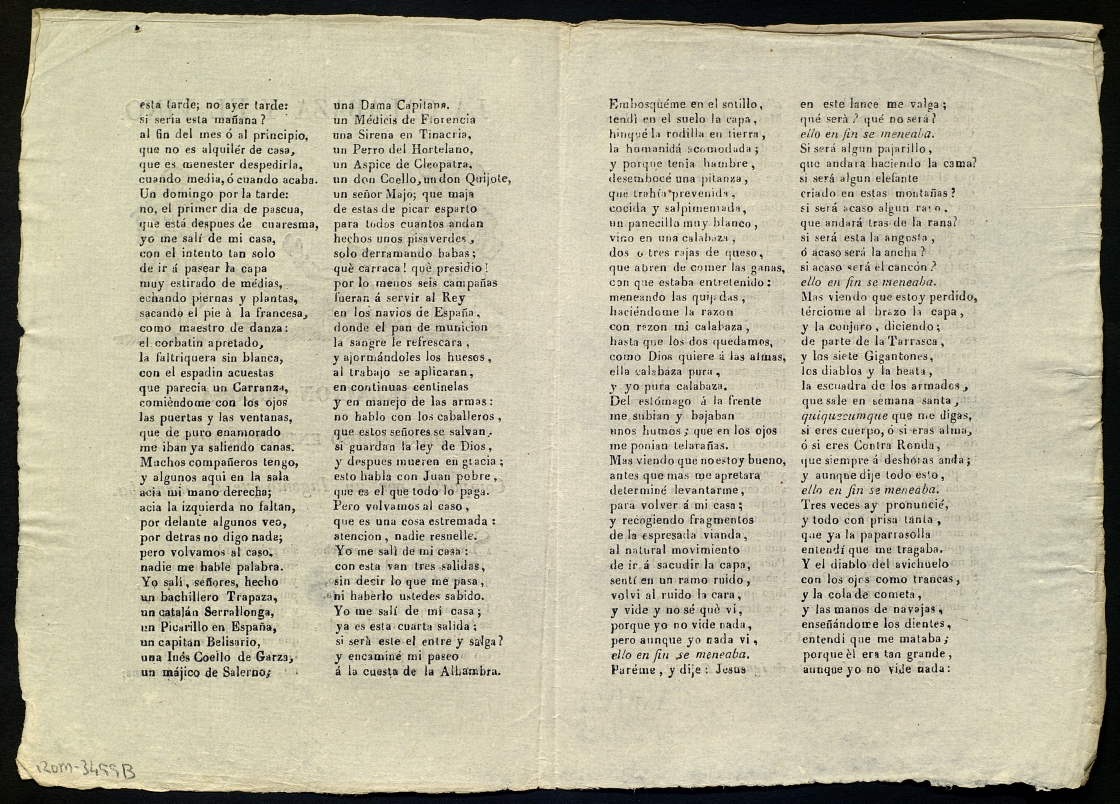 esta tarde; no ayer tarde:
si seria esta mañana?
al fin del mes ó al principio,
que no es alquilér de casa,
que es menester despedirla,
cuando media, ó cuando acaba.
Un domingo por la tarde:
no, el primer dia de pascua,
que está despues de cuaresma,
yo me salí de mi casa,
con el intento tan solo
de ir á pasear la capa
muy estirado de médias,
echando piernas y plantas,
sacando el pie à la francesa,
como maestro de danza:
el corbatin apretado,
la faltriquera sin blanca,
con el espadin acuestas
que parecia un Carranza,
comiéndome con los ojos
las puertas y las ventanas,
que de puro enamorado
me iban ya saliendo canas.
Muchos compañeros tengo,
y algunos aqui en la sala
acia mi mano derecha;
acia la izquierda no faltan,
por delante algunos veo,
por detras no digo nada;
pero volvamos al caso.
nadie me hable palabra.
Yo salí, señores, hecho
un bachillero Trapaza,
un catalán Serrallonga,
un Picarillo en España,
un capitan Belisario,
una Inés Coello de Garza,
un májico de Salerno;
una Dama Capitana.
un Médicis de Florencia
una Sirena en Tinacria,
un Perro del Hortelano,
un Aspice de Cleopatra,
un don Coello, un don Quijote,
un señor Majo; que maja
de estas de picar esparto
para todos cuantos andan
hechos unos pisaverdes,
solo derramando babas;
què carraca! què presidio!
por lo menos seis campañas
fueran á servir al Rey
en los navios de España,
donde el pan de municion
la sangre le refrescara,
y ajormándoles los huesos,
al trabajo se aplicaran,
en continuas centinelas
y en manejo de las armas:
no hablo con los caballeros,
que estos señores se salvan,
si guardan la ley de Dios,
y despues mueren en gracia;
esto habla con Juan pobre,
que es el que todo lo paga.
Pero volvamos al caso,
que es una cosa estremada:
atencion, nadie resuelle.
Yo me salí de mi casa:
con esta van tres salidas,
sin decir lo que me pasa,
ni haberlo ustedes sabido.
Yo me salí de mi casa;
ya es esta cuarta salida;
si será este el entre y salga?
y encaminé mi paseo
á la cuesta de la Alhambra.
Embosquéme en el sotillo,
tendí en el suelo la capa,
hinqué la rodilla en tierra,
la humanidá acomodada;
y porque tenia hambre,
desembocé una pitanza,
que trahía prevenida,
cocida y salpimentada,
un panecillo muy blanco,
vino en una calabaza,
dos o tres rajas de queso,
que abren de comer las ganas,
con que estaba entretenido:
meneando las quijadas,
haciéndome la razon
con razon mi calabaza,
hasta que los dos quedamos,
como Dios quiere á las almas,
ella calabaza pura,
y yo pura calabaza.
Del estómago á la frente
me subian y bajaban
unos humos; que en los ojos
me ponian telarañas.
Mas viendo que no estoy bueno,
antes que mas me apretara
determiné levantarme,
para volver á mi casa;
y recogiendo fragmentos
de la espresada vianda,
al natural movimiento
de ir á sacudir la capa,
sentí en un ramo ruido,
volvi al ruido la cara,
y vide y no sé què vi,
porque yo no vide nada,
pero aunque yo nada vi,
ello en fin se meneaba.
Paréme, y dije: Jesus
en este lance me valga;
qué será? qué no será?
ello en fin se meneaba.
Si será algun pajarillo,
que andara haciendo la cama?
si será algun elefante
criado en estas montañas?
si será acaso algun raton,
que andará tras de la rana?
si será esta la angosta,
ó acaso será la ancha?
si acaso será el cancón?
ello en fin se meneaba.
Mas viendo que estoy perdido,
térciome al brazo la capa,
y la conjuro, diciendo;
de parte de la Tarrasca,
y los siete Gigantones,
los diablos y la beata,
la escuadra de los armados,
que sale en semana santa,
quiquecumque que me digas,
si eres cuerpo, ó si eras alma,
ó si eres Contra Ronda,
que siempre á deshoras anda;
y aunque dije todo esto,
ello en fin se meneaba.
Tres veces ay pronuncié,
y todo con prisa tanta,
que ya la paparrasolla
entendí que me tragaba.
Y el diablo del avichuelo
con los ojos como trancas,
y la cola de cometa,
y las manos de navajas,
enseñándome los dientes,
entendi que me mataba;
porque èl era tan grande,
aunque yo no vide nada:
Rom-3499B